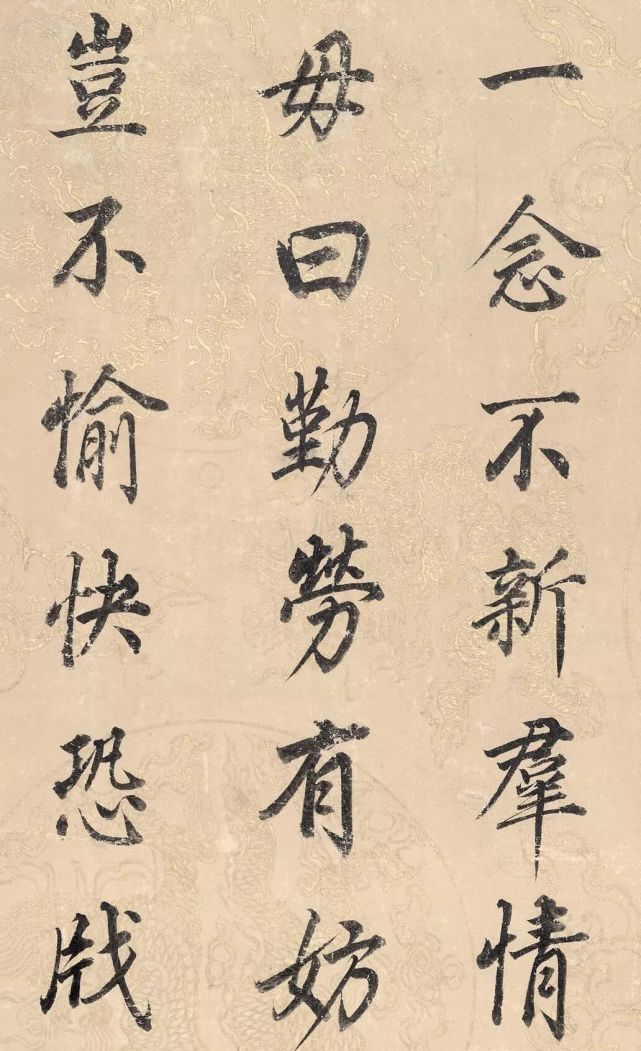 一念不新羣情
毋曰勤勞有妨
豈不愉快恐戕